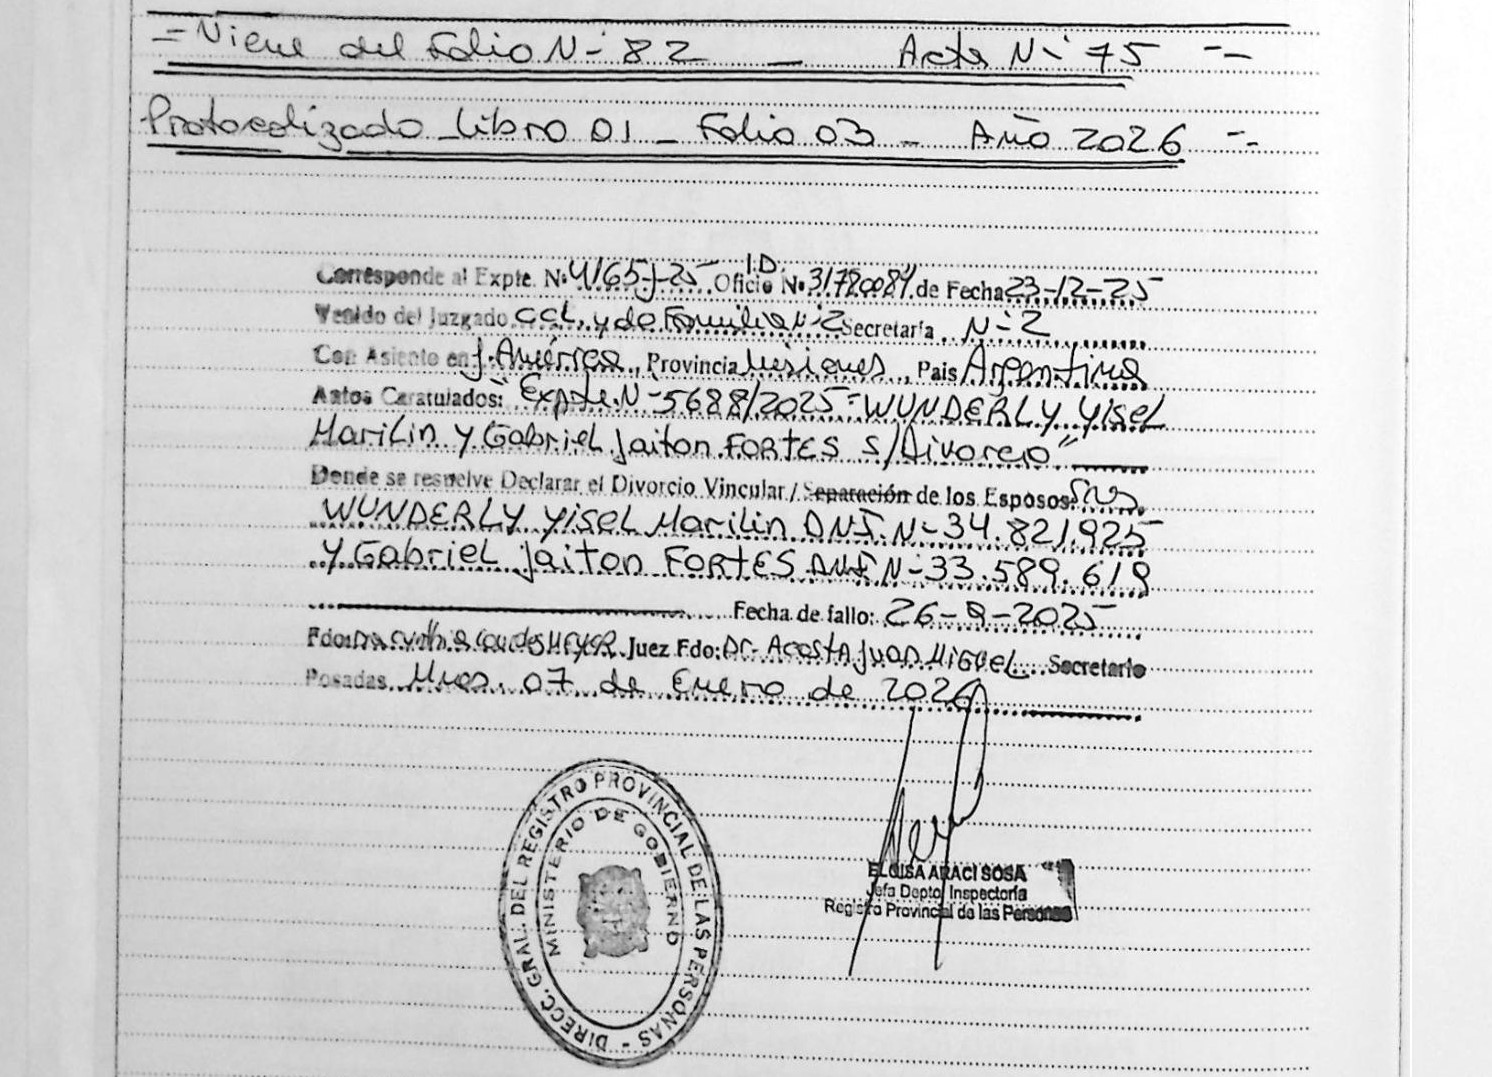 = Viene del Folio N- 82 — Acta N- 75 --
Protocolizado Libro 01 - Folio 03 - Año 2026 --
Corresponde al Expte. Nº 4165-J-25 Oficio I.D. Nº 31780084 de Fecha 23-12-25
Venido del Juzgado CCL. y de Familia N-2 Secretaría N-2
Con Asiento en J. América, Provincia Misiones, Pais Argentina
Autos Caratulados: "Expte. N-5688/2025-WUNDERLY Yisel
Marilin y Gabriel Jaiton FORTES S/Divorcio"
Donde se resuelve Declarar el Divorcio Vincular / Separación de los Esposos: Sres.
WUNDERLY Yisel Marilin DNI. N-34.821.925
y Gabriel Jaiton FORTES DNI N-33.589.619
Fecha de fallo: 26-9-2025
Fdo: Dra Cynthia Lourdes MEYER Juez Fdo: Dr. Acosta Juan Miguel Secretario
Posadas Mnes. 07 de Enero de 2026
DIRECC. GRAL. DEL REGISTRO PROVINCIAL DE LAS PERSONAS -
MINISTERIO DE GOBIERNO
ELOISA ARACI SOSA
Jefa Depto. Inspectoría
Registro Provincial de las Personas